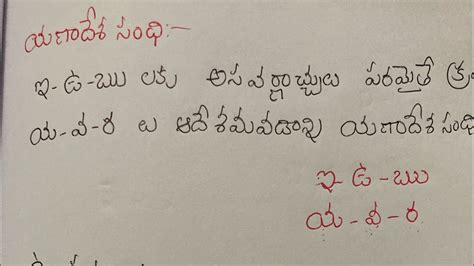 యణాదేశ సంధి:-
ఇ-ఉ-ఋ లకు అసవర్ణాచ్చులు పరమైతే
య-వ-ర లు ఆదేశమవడాన్ని యణాదేశ సంధి
ఇ-ఉ-ఋ
య-వ-ర